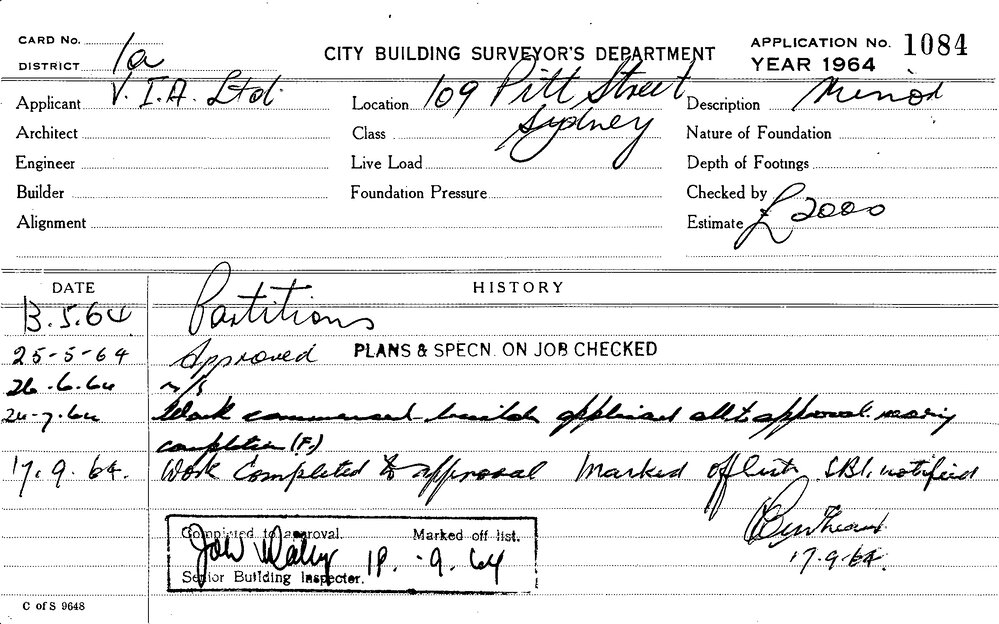 CARD No.
DISTRICT 1a
CITY BUILDING SURVEYOR'S DEPARTMENT
APPLICATION No. 1084
YEAR 1964
Applicant V.I.A. Ltd.
Location 109 Pitt Street
Sydney
Description Minor
Architect
Class
Nature of Foundation
Engineer
Live Load
Depth of Footings
Builder
Foundation Pressure
Checked by
Alignment
Estimate £2000
DATE HISTORY
13.5.64 Partitions
25-5-64 Approved PLANS & SPECN. ON JOB CHECKED
26.6.64 n/s
24-7-64 Work commenced builder applicant all to approval nearing
completion (F.)
17.9.64. Work Completed to approval Marked off list. S.B.I. notified
17.9.64.
Completed to approval. Marked off list.
18.-9.64
Senior Building Inspector.
C of S 9648